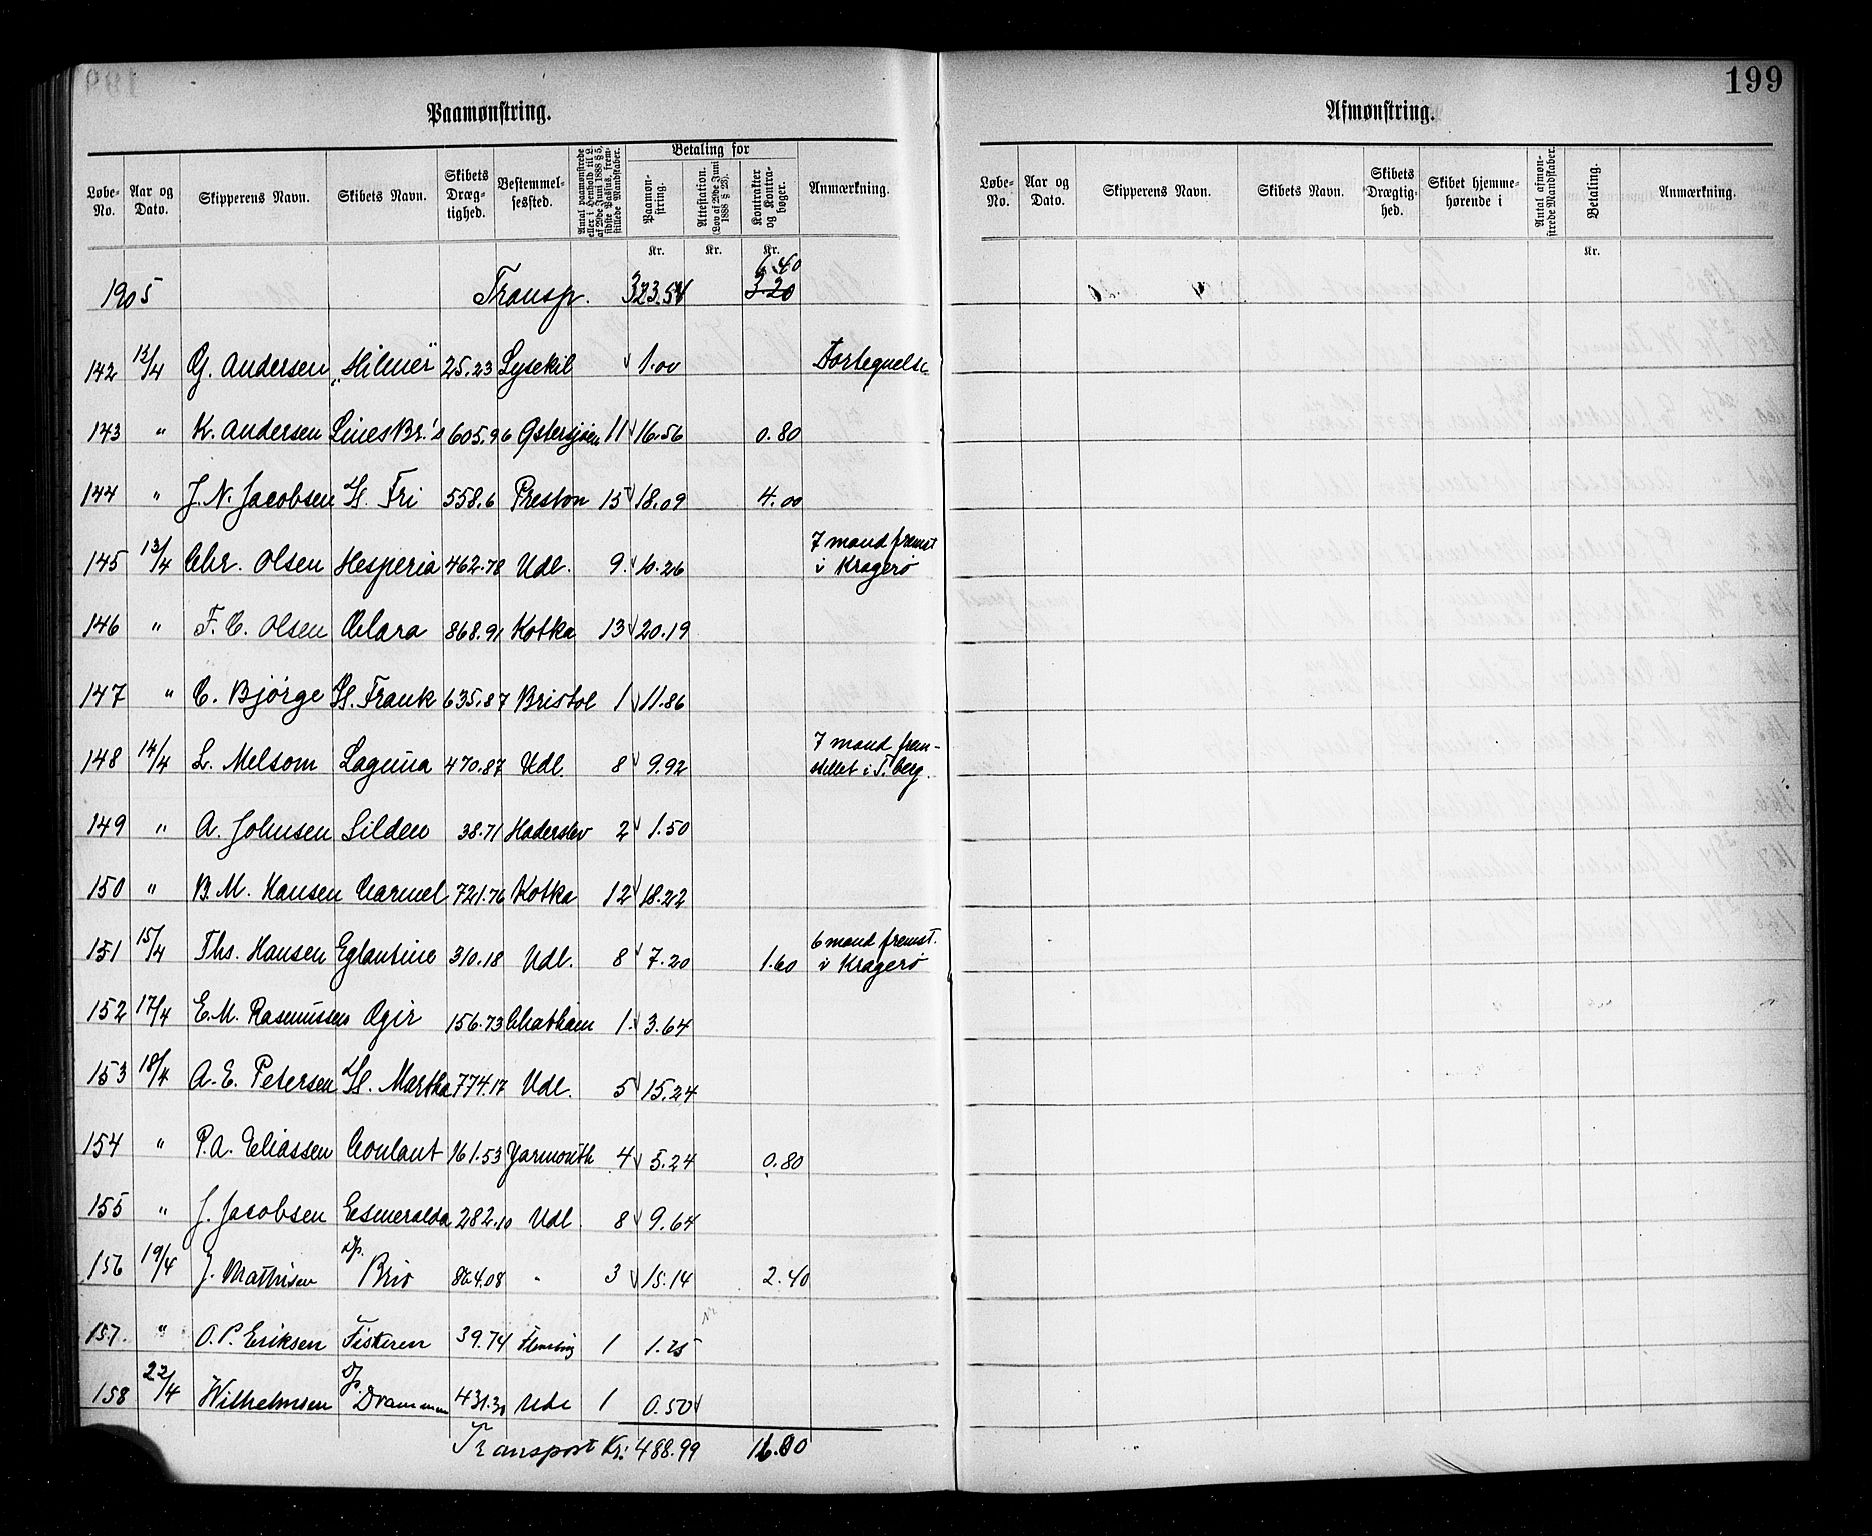 199
Paamønstring.
Løbe-No. Aar og Dato. Skipperens Navn. Skibets Navn. Skibets Dræg-tighed. Bestemmel-sessted. Antal paamønstrede eller i Henhold til L. af 29de Juni 1888 § 5, sidste Passus, frem-stillede Mandskaber. Betaling for Paamøn-string. Attestation. (Lov af 29de Juni 1888 § 23). Kontrakter og Kontra-bøger. Anmærkning.
Kr. Kr. Kr.
6.40
1905 Transp. 323.54 3.20
142 12/4 Hilmer 25.23 Lysekil 1.00 Fortegnelse
143 " K. Andersen Lines Br.'s 605.96 Østersjøen 11 16.56 0.80
144 " J. N. Jacobsen Fri 558.6 Preston 15 18.09 4.00
7 mand fremst
145 13/4 Chr. Olsen Hesperia 462.78 Udl. 9. 10.26 i Kragerø
146 " F. C. Olsen Clara 868.91 Kotka 13 20.19
147 " C. Bjørge Frank 635.87 Bristol 1 11.86
7 mand frem-
148 14/4 L. Melsom Laguna 470.87 Udl. 8 9.92 stillet i T.berg.
149 " A. Johnsen Silden 38.71 Haderslev 2 1.50
150 " B. M. Hansen Carmel 721.76 Kotka 12 18.22
6 mand fremst.
151 15/4 Ths. Hansen Eglantine 310.18 Udl. 8 7.20 1.60 i Kragerø
152 17/4 E. M. Rasmussen Ægir 156.73 Chatham 1. 3.64
153 18/4 A. E. Petersen Martha 774.17 Udl. 5 15.24
154 " P. A. Eliassen Coulant 161.53 Yarmouth 4 5.24 0.80
155 " J. Jacobsen Esmeralda 282.10 Udl 8 9.64
156 19/4 J. Mathisen Dp. Brio 864.08 " 3 15.14 2.40
157. " O. P. Eriksen Fiskeren 39.74 Flensburg 1 1.25
158 22/4 Wilhelmsen Dp. Drammen 431.30 Udl 1 0.50
Transport Kr: 488.99 16.00
Afmønstring.
Løbe-No. Aar og Dato. Skipperens Navn. Skibets Navn. Skibets Drægtig-hed. Skibet hjemme-hørende i Antal afmøn-strede Mandskaber. Betaling. Anmærkning.
Kr.